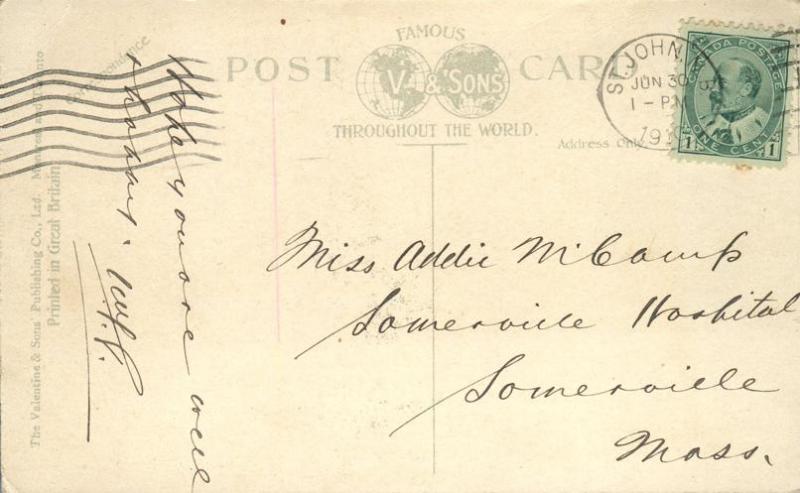 FAMOUS
POST V. & SONS CARD
THROUGHOUT THE WORLD.
Correspondence
Address Only
ST. JOHN, N.
JUN 30
1 - PM
191
CANADA POSTAGE
ONE CENT
1 1
Hope you are well
& happy.
Miss Addie McCamp
Somerville Hospital
Somerville
Mass.
The Valentine & Sons Publishing Co., Ltd. Montreal and Toronto
Printed in Great Britain